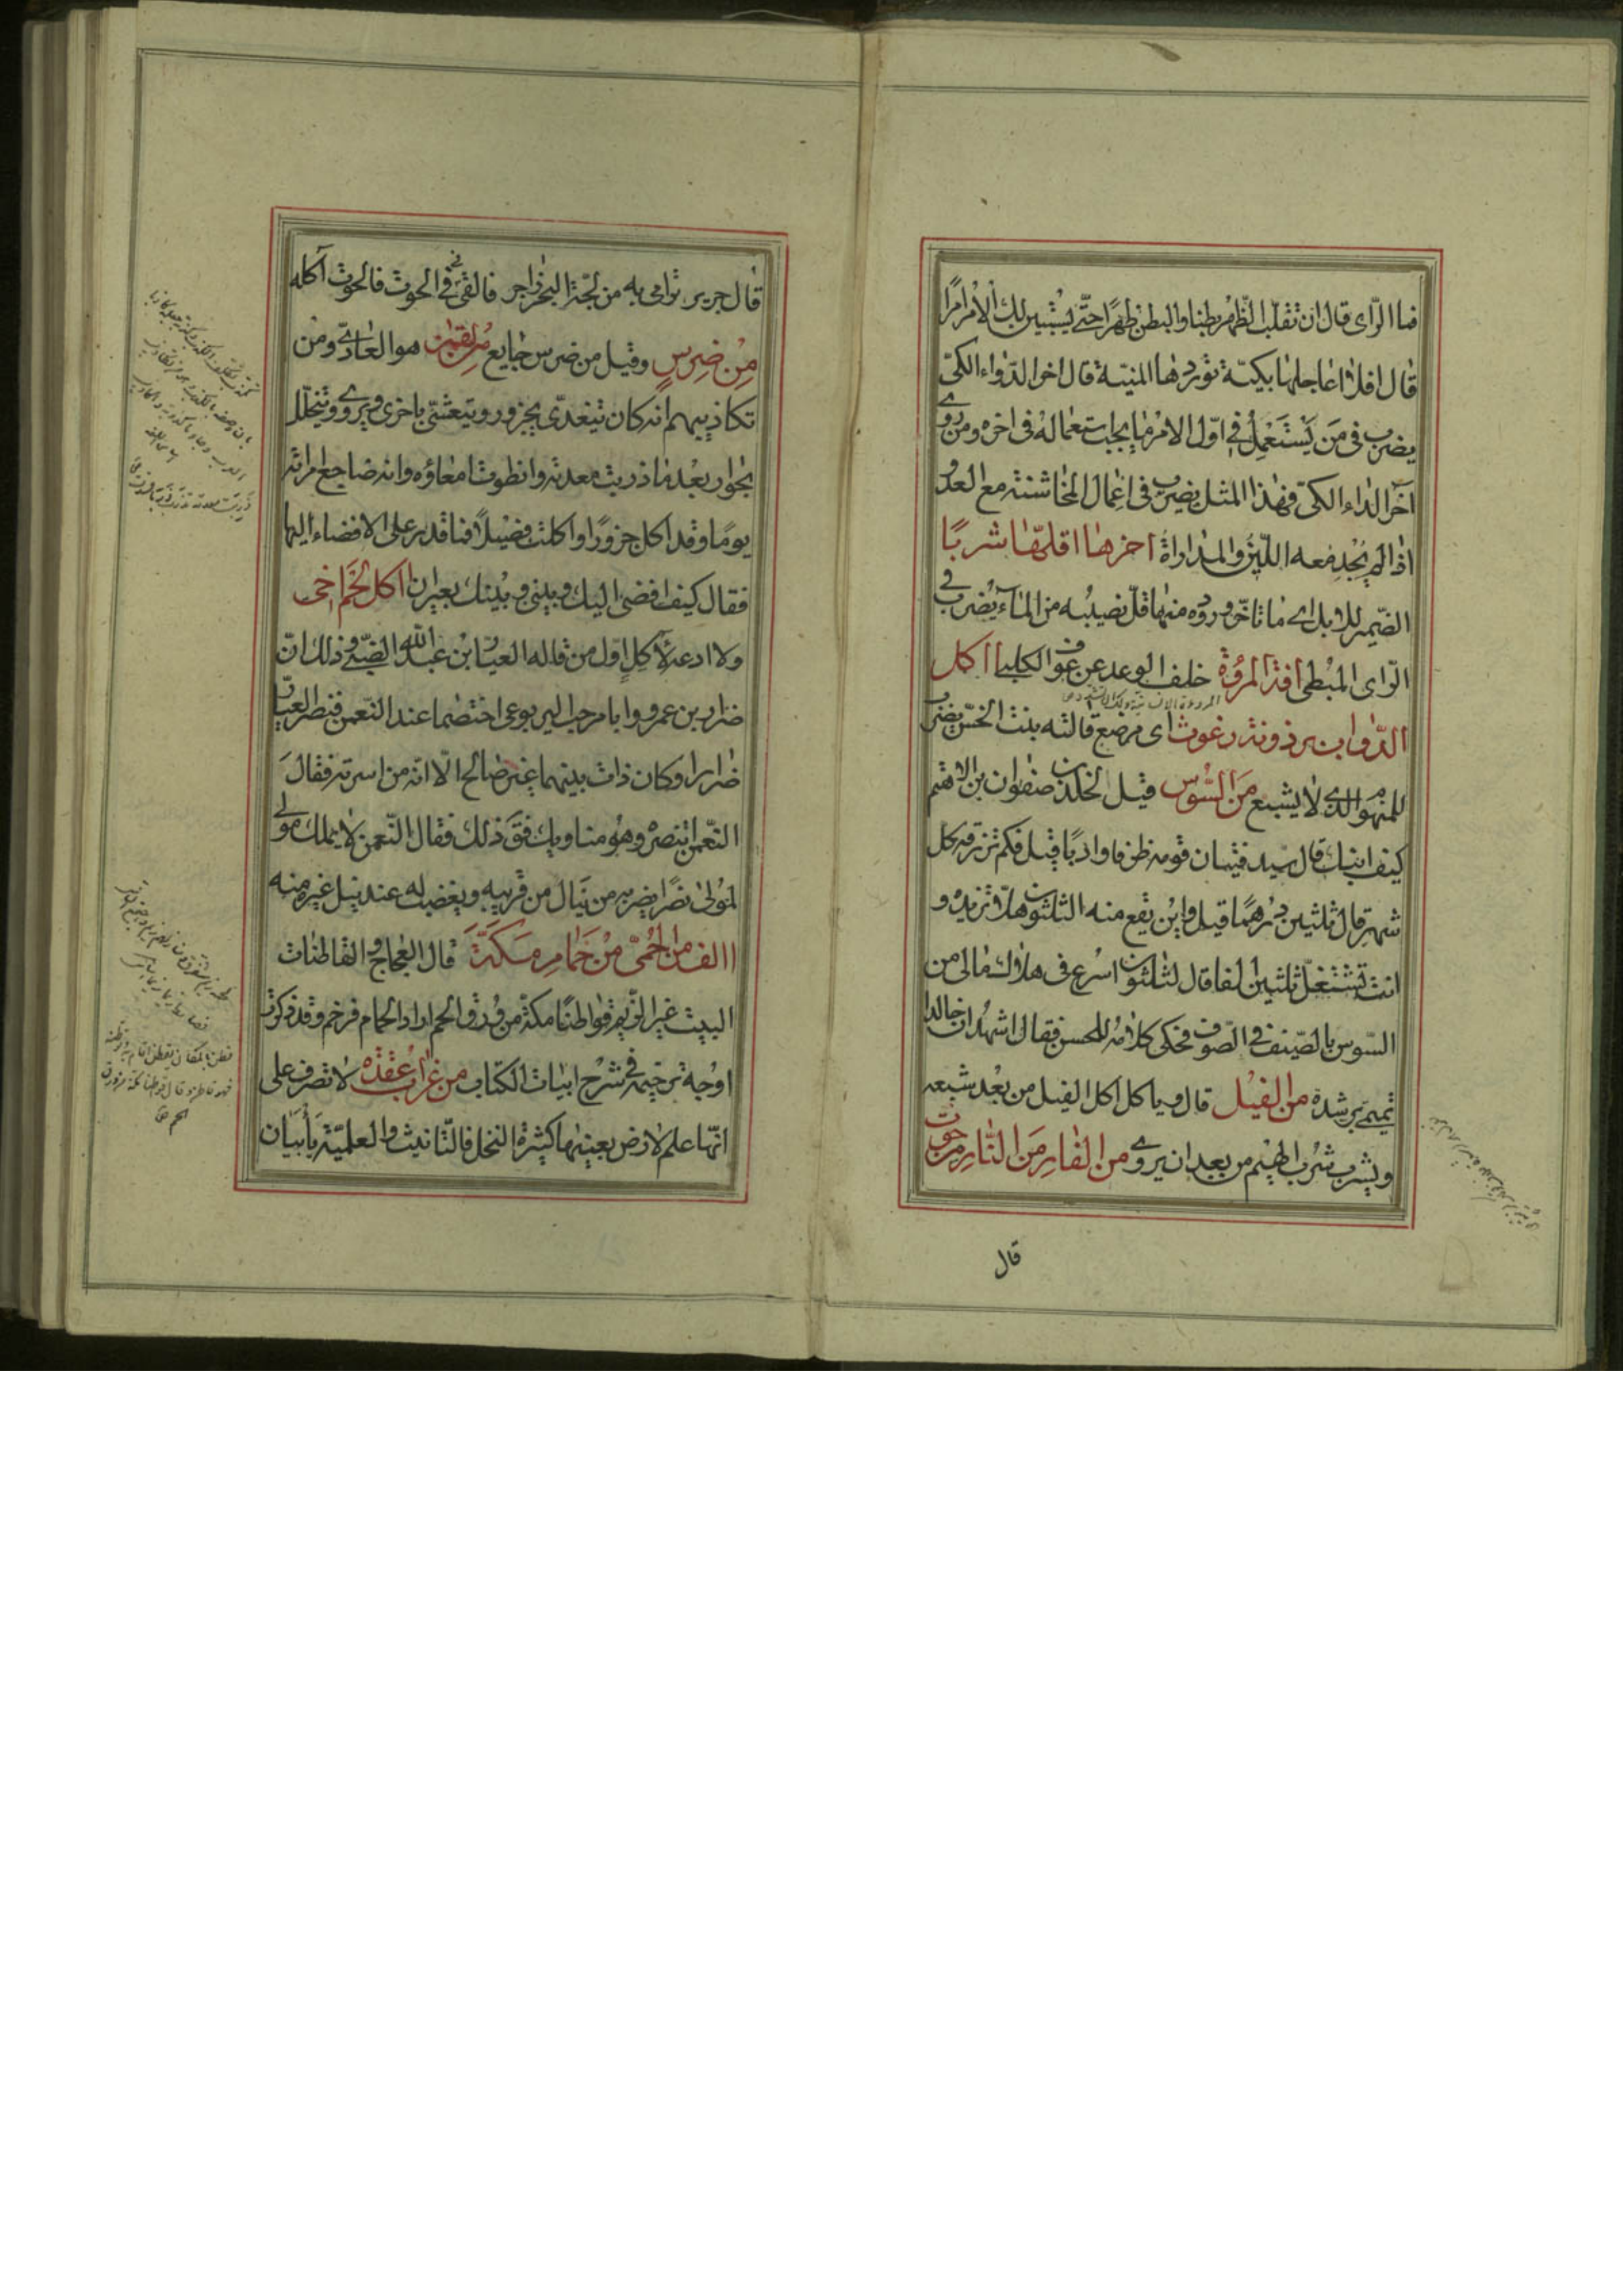 فما الرّاى قال ان تقلب الظّهر بطنا والبطن ظهرًا حتّى يستبين لك الامر امرًا
قال افلا اعاجلها بكيّة توردها المنيّة قال اخر الدّواء الكىّ
يضرب فى من يستعمل فى اوّل الامر ما يجب استعماله فى اخره ومن روى
آخر الداء الكىّ فهذا المثل يضرب فى اعمال المخاشنة مع العدوّ
اذا لم يجد معه اللّين والمداراة اخرها اقلّها شربًا
الضّمير للابل اى ما تاخّر وروده منها قلّ نصيبه من الماء يضرب فى
الرّاى المبطى آفة المروّة خلف الوعد عن عوف الكلبى آكل
الدّواب برذونة رغوث اى مرضع قالته بنت الخسّ يضرب
للمنهوم الذى لا يشبع من السّوس قيل لخالد بن صفوان بن الاهتم
كيف ابنك قال سيد فتيان قومه ظرفا وادبًا قيل فكم ترزقه كل
شهر قال ثلثين درهمًا قيل واين يقع منه الثلثون هلا تزيده و
انت تستغلّ ثلثين الفا قال لثلثون اسرع فى هلاك مالى من
السّوس بالصّيف فى الصّوف فحكى كلامه للحسن فقال اشهد ان خالدا
تميمىّ برشده من الفيل قال وياكل اكل الفيل من بعد شبعه
ويشرب شرب الهيم من بعد ان يروى من الفار من النّار من حوت
قال
قال جرير ترامى به من لجّة البحر زاخر فالقى فى فى الحوت فالحوت آكله
من ضرس وقيل من ضرس جايع من لقمن هو العادىّ ومن
تكاذيبهم انه كان يتغدّى بجزور ويتعشّى باخرى ويروى ويتخلّل
بحوار بعد ما ذربت معدته وانطوت امعاؤه وانه ضاجع امراته
يومًا وقد اكل جزورًا واكلت فصيلاً فما قدر على الافضاء اليها
فقال كيف افضى اليك وبينى وبينك بعيران آكل لحم اخى
ولا ادعه لآكل اوّل من قاله العيّار بن عبد الله الضبىّ وذلك انّ
ضرار بن عمرو وابا مرحب اليربوعى اختصما عند النّعمن فنصر العيّار
ضرارا وكان ذات بينهما غير صالح الّا انّه من اسرته فقال
النّعمن اتنصره وهو مناويك فقّ ذلك فقال النّعمن لا يملك مولى
لمولى نصرًا يضرب من ينال من قريبه ويغضب له عند نيل غيره منه
االف من الحمّى من حمام مكّة قال العجاج والقاطنات
البيت غير الرّيم قواطنًا مكة من ورق الحم اراد الحمام فرخم وقد ذكرت
اوجه ترخيمه فى شرح ابيات الكتاب من غراب عقدة لا تصرف على
انّها علم لارض بعينها كثيرة النخل فالتّانيث والعلميّة يأبيان